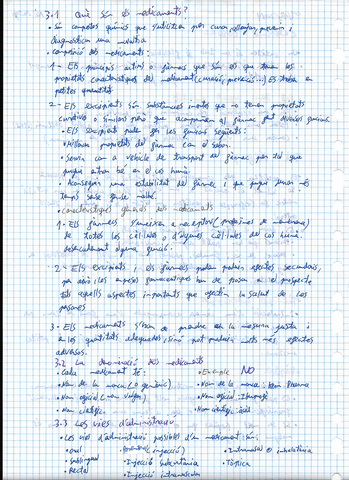 3.1 Què són els medicaments?
• Són compostos químics que s'utilitzen per curar malalties, prevenir i
diagnosticar una malaltia
• composició dels medicaments:
1- Els principis actius o fàrmacs que són els que tenen les
propietats característiques del medicament (curació, prevenció...) Es troba en
petites quantitats
2- Els excipients són substàncies inertes que no tenen propietats
curatives o similars però que acompanyen al fàrmac per diverses funcions
• Els excipients poden fer les funcions següents:
• Millorar propietats del fàrmac com el sabor.
• Servir com a vehicle de transport del fàrmac per tal que
pugui entrar bé en el cos humà.
• Aconseguir una estabilitat del fàrmac i que pugui durar més
temps sense fer-se malbé.
• característiques generals dels medicaments
1- Els fàrmacs s'uneixen a receptors (proteïnes de membrana)
de totes les cèl·lules o d'algunes cèl·lules del cos humà
desencadenant alguna funció.
2- Els excipients i els fàrmacs poden produir efectes secundaris,
per això les empreses farmacèutiques han de posar en el prospecte
tots aquells aspectes importants que afectin la salut de les
persones
3- Els medicaments s'han de prendre en la mesura justa i
en les quantitats adequades, sinó pot produir molts més efectes
adversos.
3.2 La denominació dels medicaments
• Cada medicament té:
• Exemple NO
• Nom de la marca (o genèric)
• Nom de la marca: Kern Pharma
• Nom oficial
• Nom oficial: Ibuprofè
• Nom científic
• Nom científic: àcid
3.3 Les vies d'administració
• Les vies d'administració possibles d'un medicament són:
• oral
(injecció)
• Intranasal o inhalatòria
• Sublingual
• Injecció subcutània
• Tòpica
• Rectal
• Injecció intramuscular